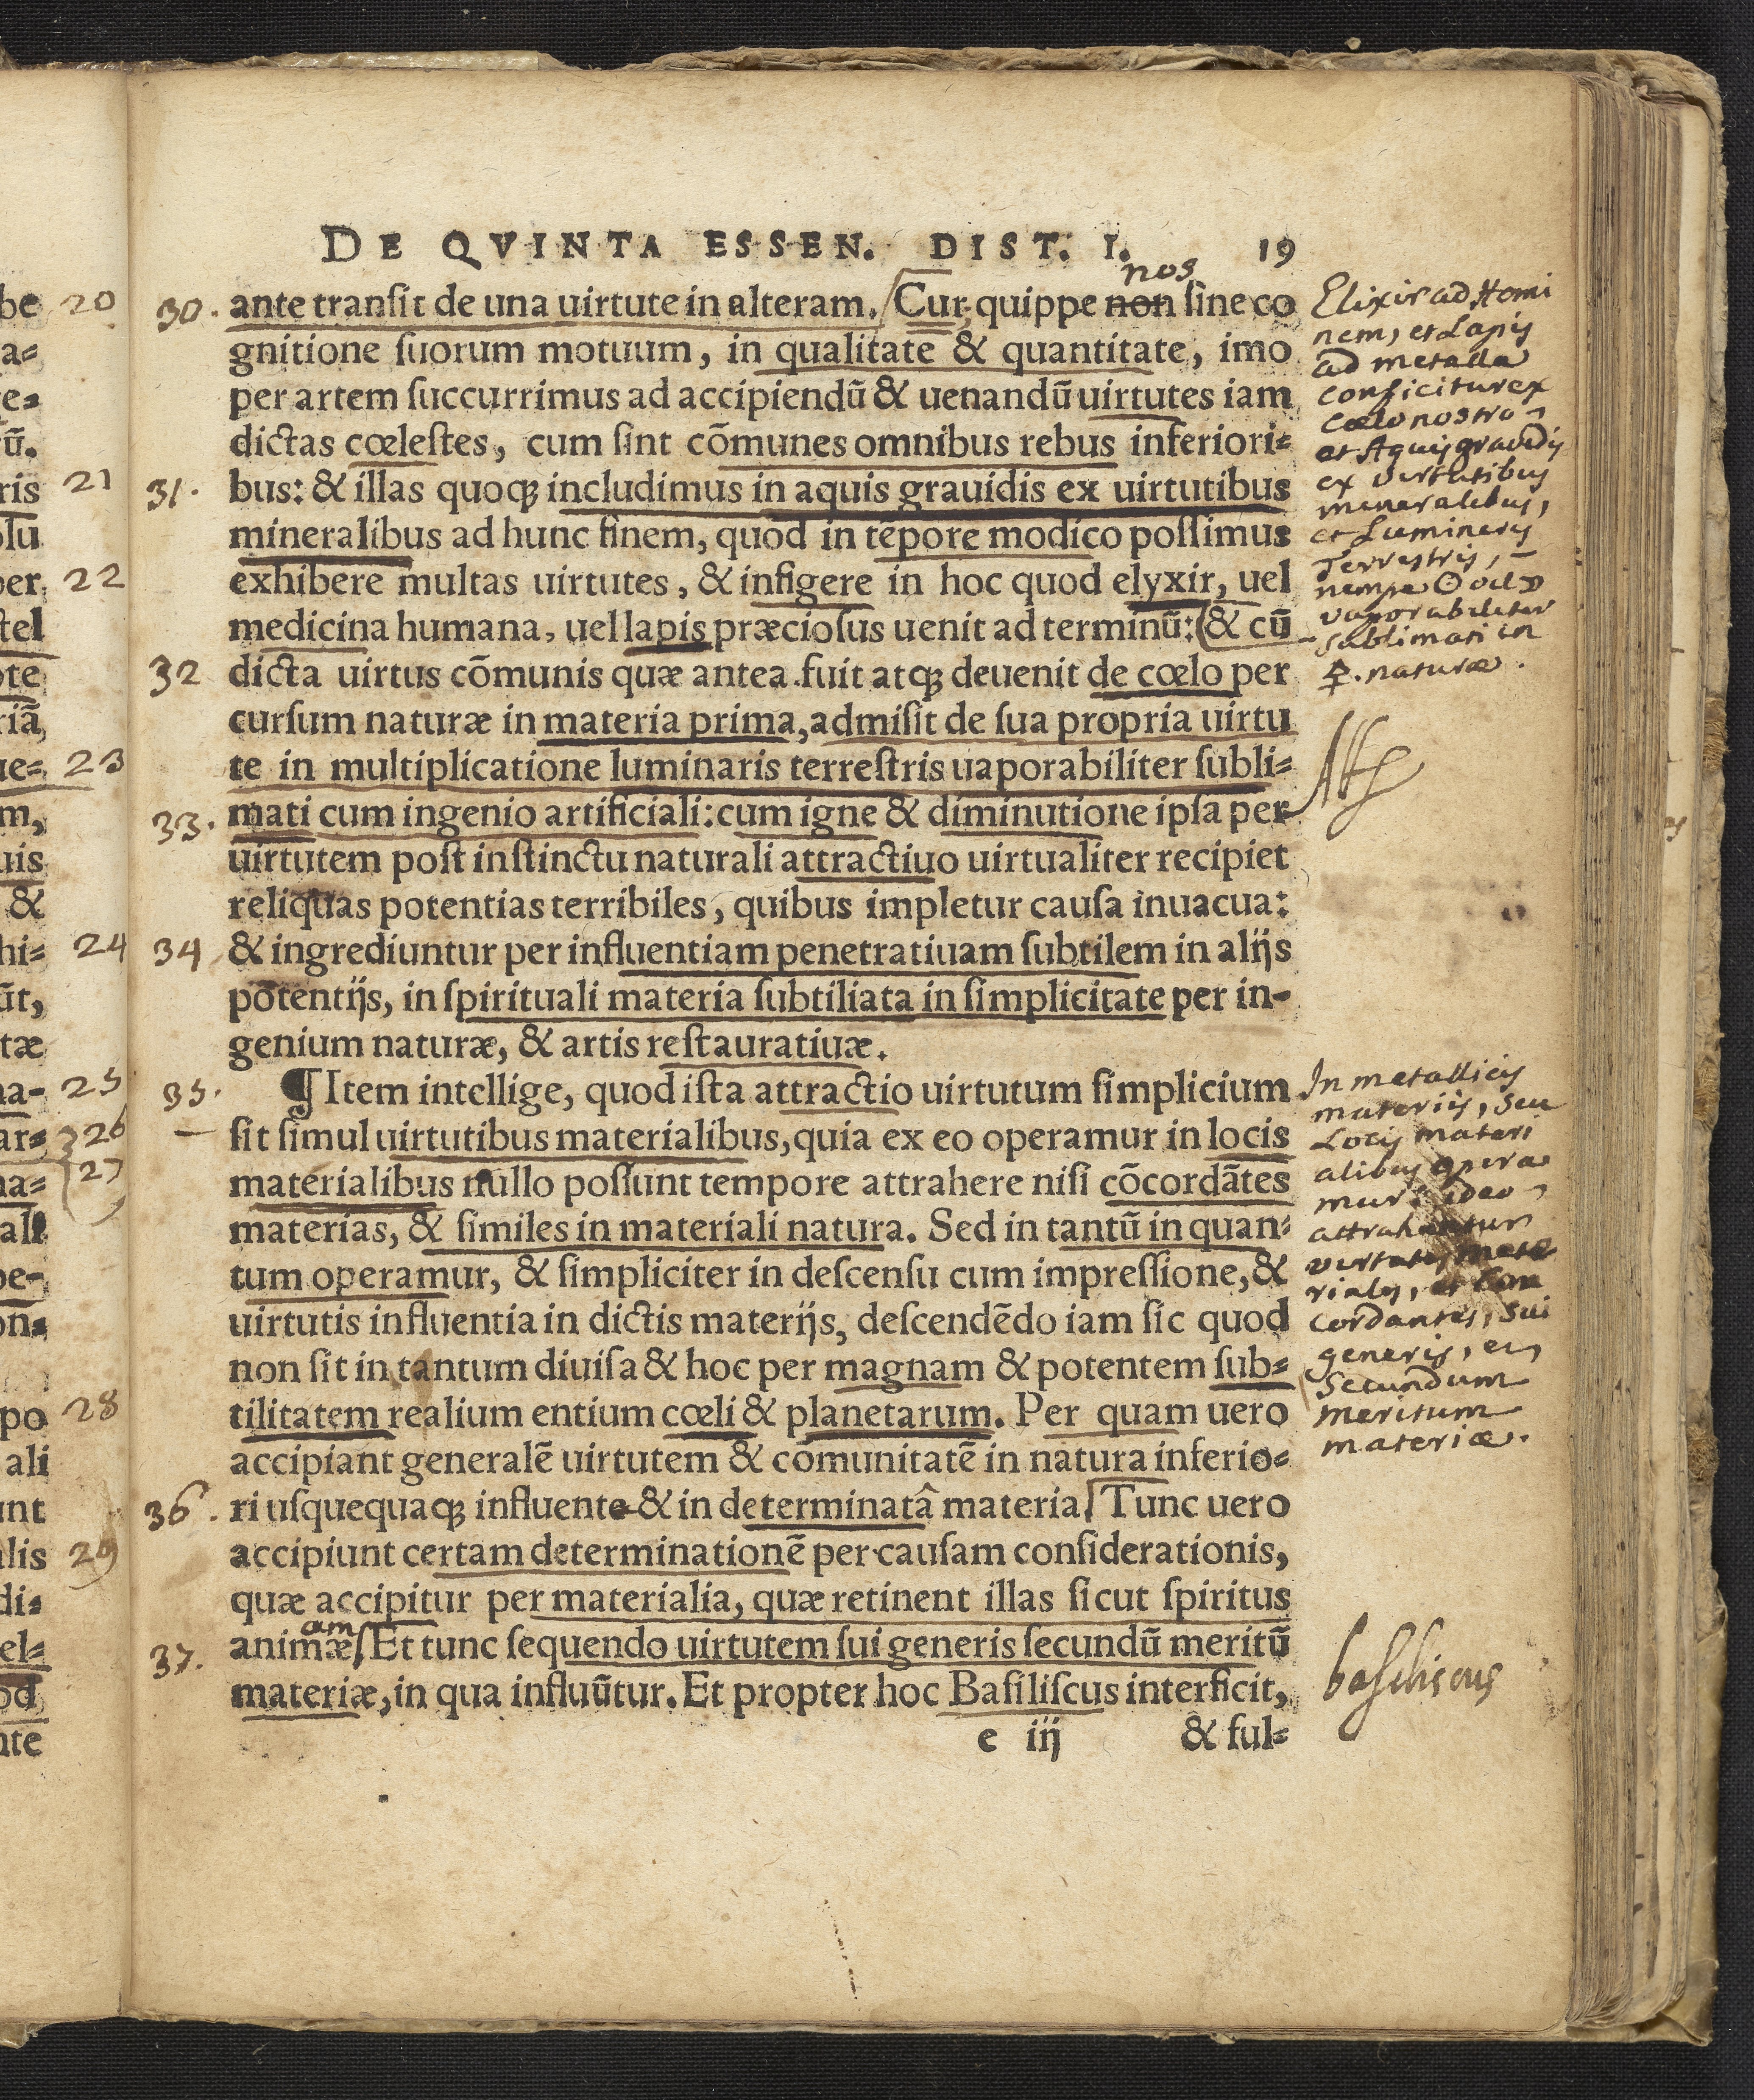 DE QVINTA ESSEN. DIST. I. 19
nos
30. ante transit de una uirtute in alteram. Cur, quippe non sine co
gnitione suorum motuum, in qualitate & quantitate, imo
per artem succurrimus ad accipiendū & uenandū uirtutes iam
dictas cœlestes, cum sint cōmunes omnibus rebus inferiori-
31. bus: & illas quoq; includimus in aquis grauidis ex uirtutibus
mineralibus ad hunc finem, quod in tēpore modico possimus
exhibere multas uirtutes, & infigere in hoc quod elyxir, uel
medicina humana, uel lapis præciosus uenit ad terminū: & cū
32 dicta uirtus cōmunis quæ antea fuit atq; deuenit de cœlo per
cursum naturæ in materia prima, admisit de sua propria uirtu
te in multiplicatione luminaris terrestris uaporabiliter subli-
33. mati cum ingenio artificiali: cum igne & diminutione ipsa per
uirtutem post instinctu naturali attractiuo uirtualiter recipiet
reliquas potentias terribiles, quibus impletur causa inuacua:
34 & ingrediuntur per influentiam penetratiuam subtilem in alijs
potentijs, in spirituali materia subtiliata in simplicitate per in-
genium naturæ, & artis restauratiuæ.
35. ¶ Item intellige, quod ista attractio uirtutum simplicium
sit simul uirtutibus materialibus, quia ex eo operamur in locis
materialibus nullo possunt tempore attrahere nisi cōcordātes
materias, & similes in materiali natura. Sed in tantū in quan-
tum operamur, & simpliciter in descensu cum impressione, &
uirtutis influentia in dictis materijs, descendēdo iam sic quod
non sit in tantum diuisa & hoc per magnam & potentem sub-
tilitatem realium entium cœli & planetarum. Per quam uero
accipiant generalē uirtutem & comunitatē in natura inferio-
36. ri usquequaq; influente & in determinatâ materia. Tunc uero
accipiunt certam determinationē per causam considerationis,
quæ accipitur per materialia, quæ retinent illas sicut spiritus
am
37. animæ. Et tunc sequendo uirtutem sui generis secundū meritū
materiæ, in qua influūtur. Et propter hoc Basiliscus interficit,
e iij & ful-
Elixir ad Homi
nem, et Lapis
ad metalla
conficitur ex
Cœlo nostro
et Aquis gravidis
ex virtutibus
mineralibus,
et Luminaris
Terrestris,
nempe ☉ vel ☽
vaporabiliter
sublimati in
☿. naturæ.
In metallicis
materiis, seu
Locis materi
alibus opera
mur: ideo
attrahuntur
virtutes mate
riales, et Con
cordantes, sui
generis, et
Secundum
meritum
materiæ.
basiliscus
be 20
a-
e-
ū.
ris 21
olu
per 22
tel
ote
riā
ue- 23
m,
uis
&
hi- 24
ūt,
tæ
na- 25
ar- 26
na- 27
all
pe-
on-
po 28
ali
unt
lis 29
di-
el-
od
nte